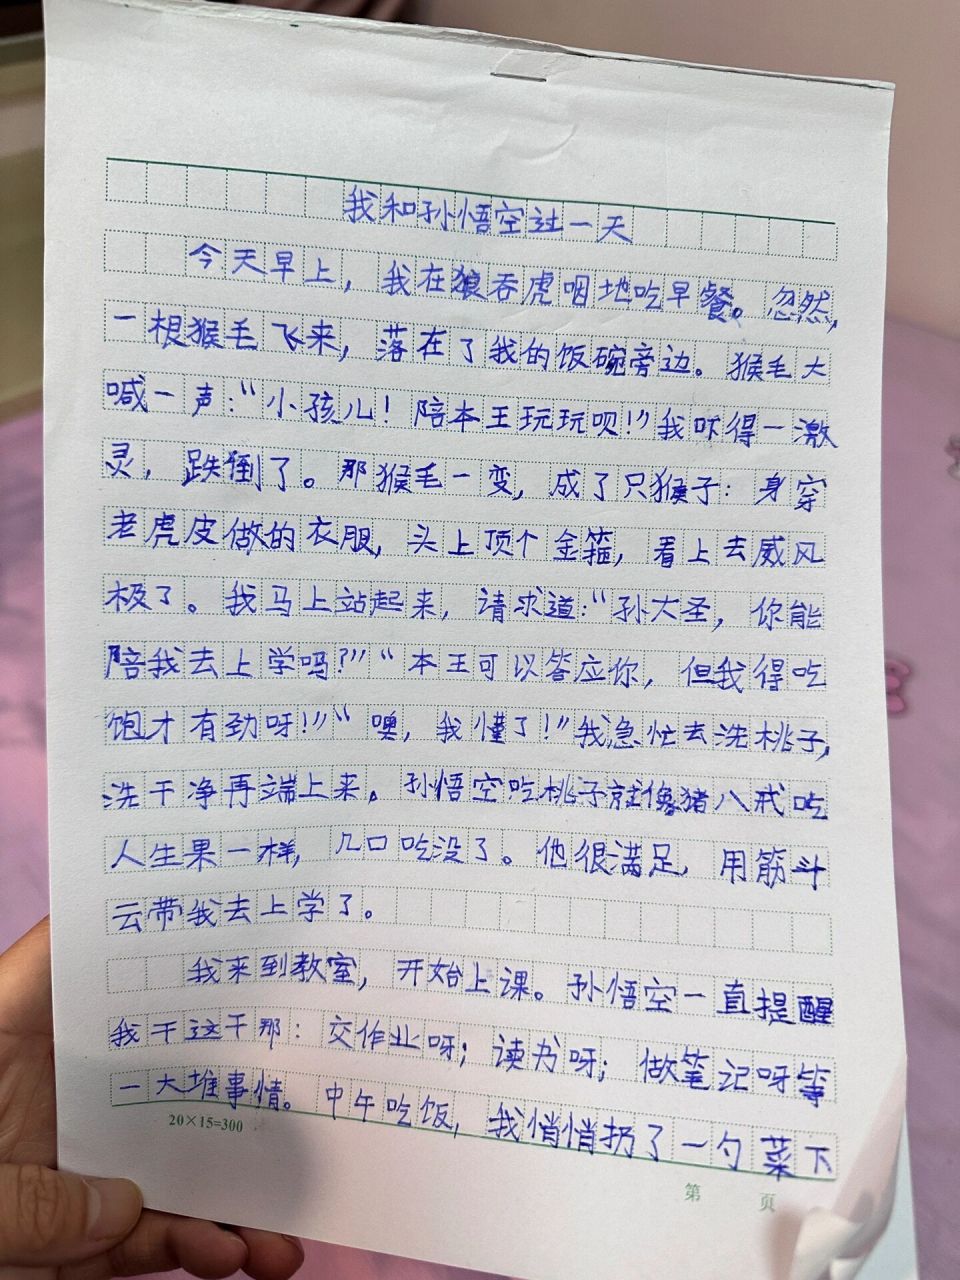 我和孙悟空过一天
今天早上，我在狼吞虎咽地吃早餐。忽然，
一根猴毛飞来，落在了我的饭碗旁边。猴毛大
喊一声：“小孩儿！陪本王玩玩呗！”我吓得一激
灵，跌倒了。那猴毛一变，成了只猴子：身穿
老虎皮做的衣服，头上顶个金箍，看上去威风
极了。我马上站起来，请求道：“孙大圣，你能
陪我去上学吗？”“本王可以答应你，但我得吃
饱才有劲呀！”“噢，我懂了！”我急忙去洗桃子，
洗干净再端上来。孙悟空吃桃子就像猪八戒吃
人生果一样，几口吃没了。他很满足，用筋斗
云带我去上学了。
我来到教室，开始上课。孙悟空一直提醒
我干这干那：交作业呀；读书呀；做笔记呀等
一大堆事情。中午吃饭，我悄悄扔了一勺菜下
20×15=300
第 页